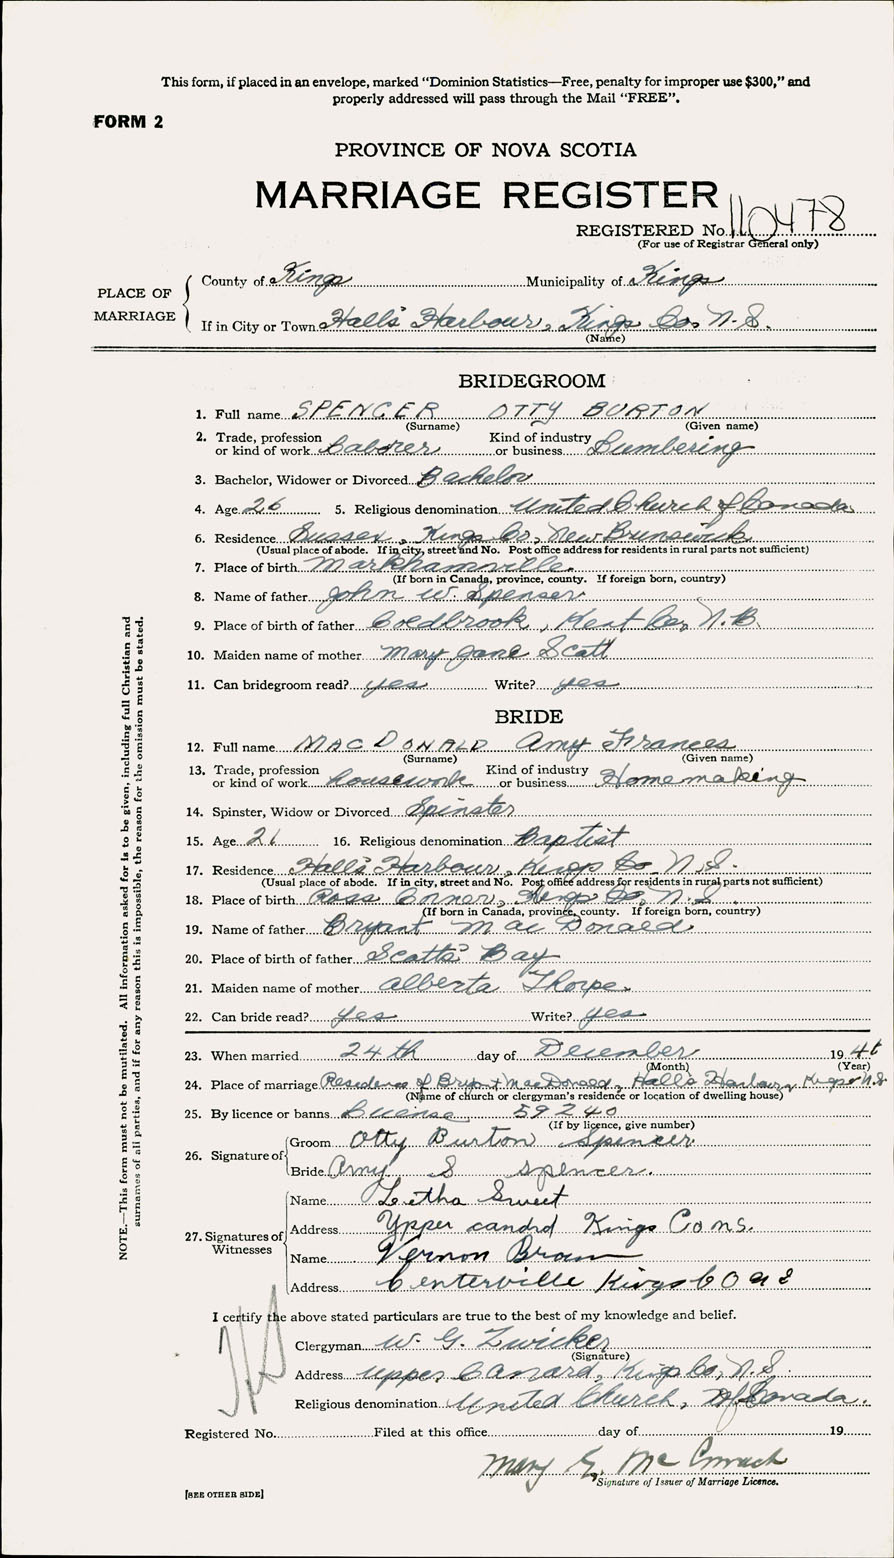 This form, if placed in an envelope, marked "Dominion Statistics—Free, penalty for improper use $300," and
properly addressed will pass through the Mail "FREE".
FORM 2
PROVINCE OF NOVA SCOTIA
MARRIAGE REGISTER
REGISTERED No. 110478
(For use of Registrar General only)
PLACE OF MARRIAGE
County of Kings Municipality of Kings
If in City or Town Hall's Harbour, Kings Co, N.S.
(Name)
BRIDEGROOM
1. Full name SPENCER OTTY BURTON
(Surname) (Given name)
2. Trade, profession or kind of work Laborer Kind of industry or business Lumbering
3. Bachelor, Widower or Divorced Bachelor
4. Age 26 5. Religious denomination United Church of Canada
6. Residence Sussex, Kings Co, New Brunswick
(Usual place of abode. If in city, street and No. Post office address for residents in rural parts not sufficient)
7. Place of birth Markhamville
(If born in Canada, province, county. If foreign born, country)
8. Name of father John W. Spenser
9. Place of birth of father Coldbrook, Kent Co, N.B.
10. Maiden name of mother Mary Jane Scott
11. Can bridegroom read? yes Write? yes
BRIDE
12. Full name MACDONALD Amy Frances
(Surname) (Given name)
13. Trade, profession or kind of work housework Kind of industry or business Homemaking
14. Spinster, Widow or Divorced Spinster
15. Age 21 16. Religious denomination Baptist
17. Residence Hall's Harbour, Kings Co N.S.
(Usual place of abode. If in city, street and No. Post office address for residents in rural parts not sufficient)
18. Place of birth Ross Corner, Kings Co, N.S.
(If born in Canada, province, county. If foreign born, country)
19. Name of father Bryant MacDonald
20. Place of birth of father Scotts Bay
21. Maiden name of mother Alberta Thorpe
22. Can bride read? yes Write? yes
23. When married 24th day of December 19
(Month) (Year)
24. Place of marriage Residence of Bryant MacDonald, Hall's Harbour, Kings N.S.
(Name of church or clergyman's residence or location of dwelling house)
25. By licence or banns License 59240
(If by licence, give number)
26. Signature of
Groom Otty Burton Spencer
Bride Amy S spencer.
27. Signatures of Witnesses
Name Letha Sweet
Address Upper canard Kings Co ns.
Name Vernon Brown
Address Centerville Kings Co
I certify the above stated particulars are true to the best of my knowledge and belief.
Clergyman W. G. Zwicker
(Signature)
Address Upper Canard, Kings Co, N.S.
Religious denomination United Church, Of Canada.
Registered No. Filed at this office day of 19
Mary
Signature of Issuer of Marriage Licence.
[SEE OTHER SIDE]
NOTE.—This form must not be mutilated. All information asked for is to be given, including full Christian and
surnames of all parties, and if for any reason this is impossible, the reason for the omission must be stated.